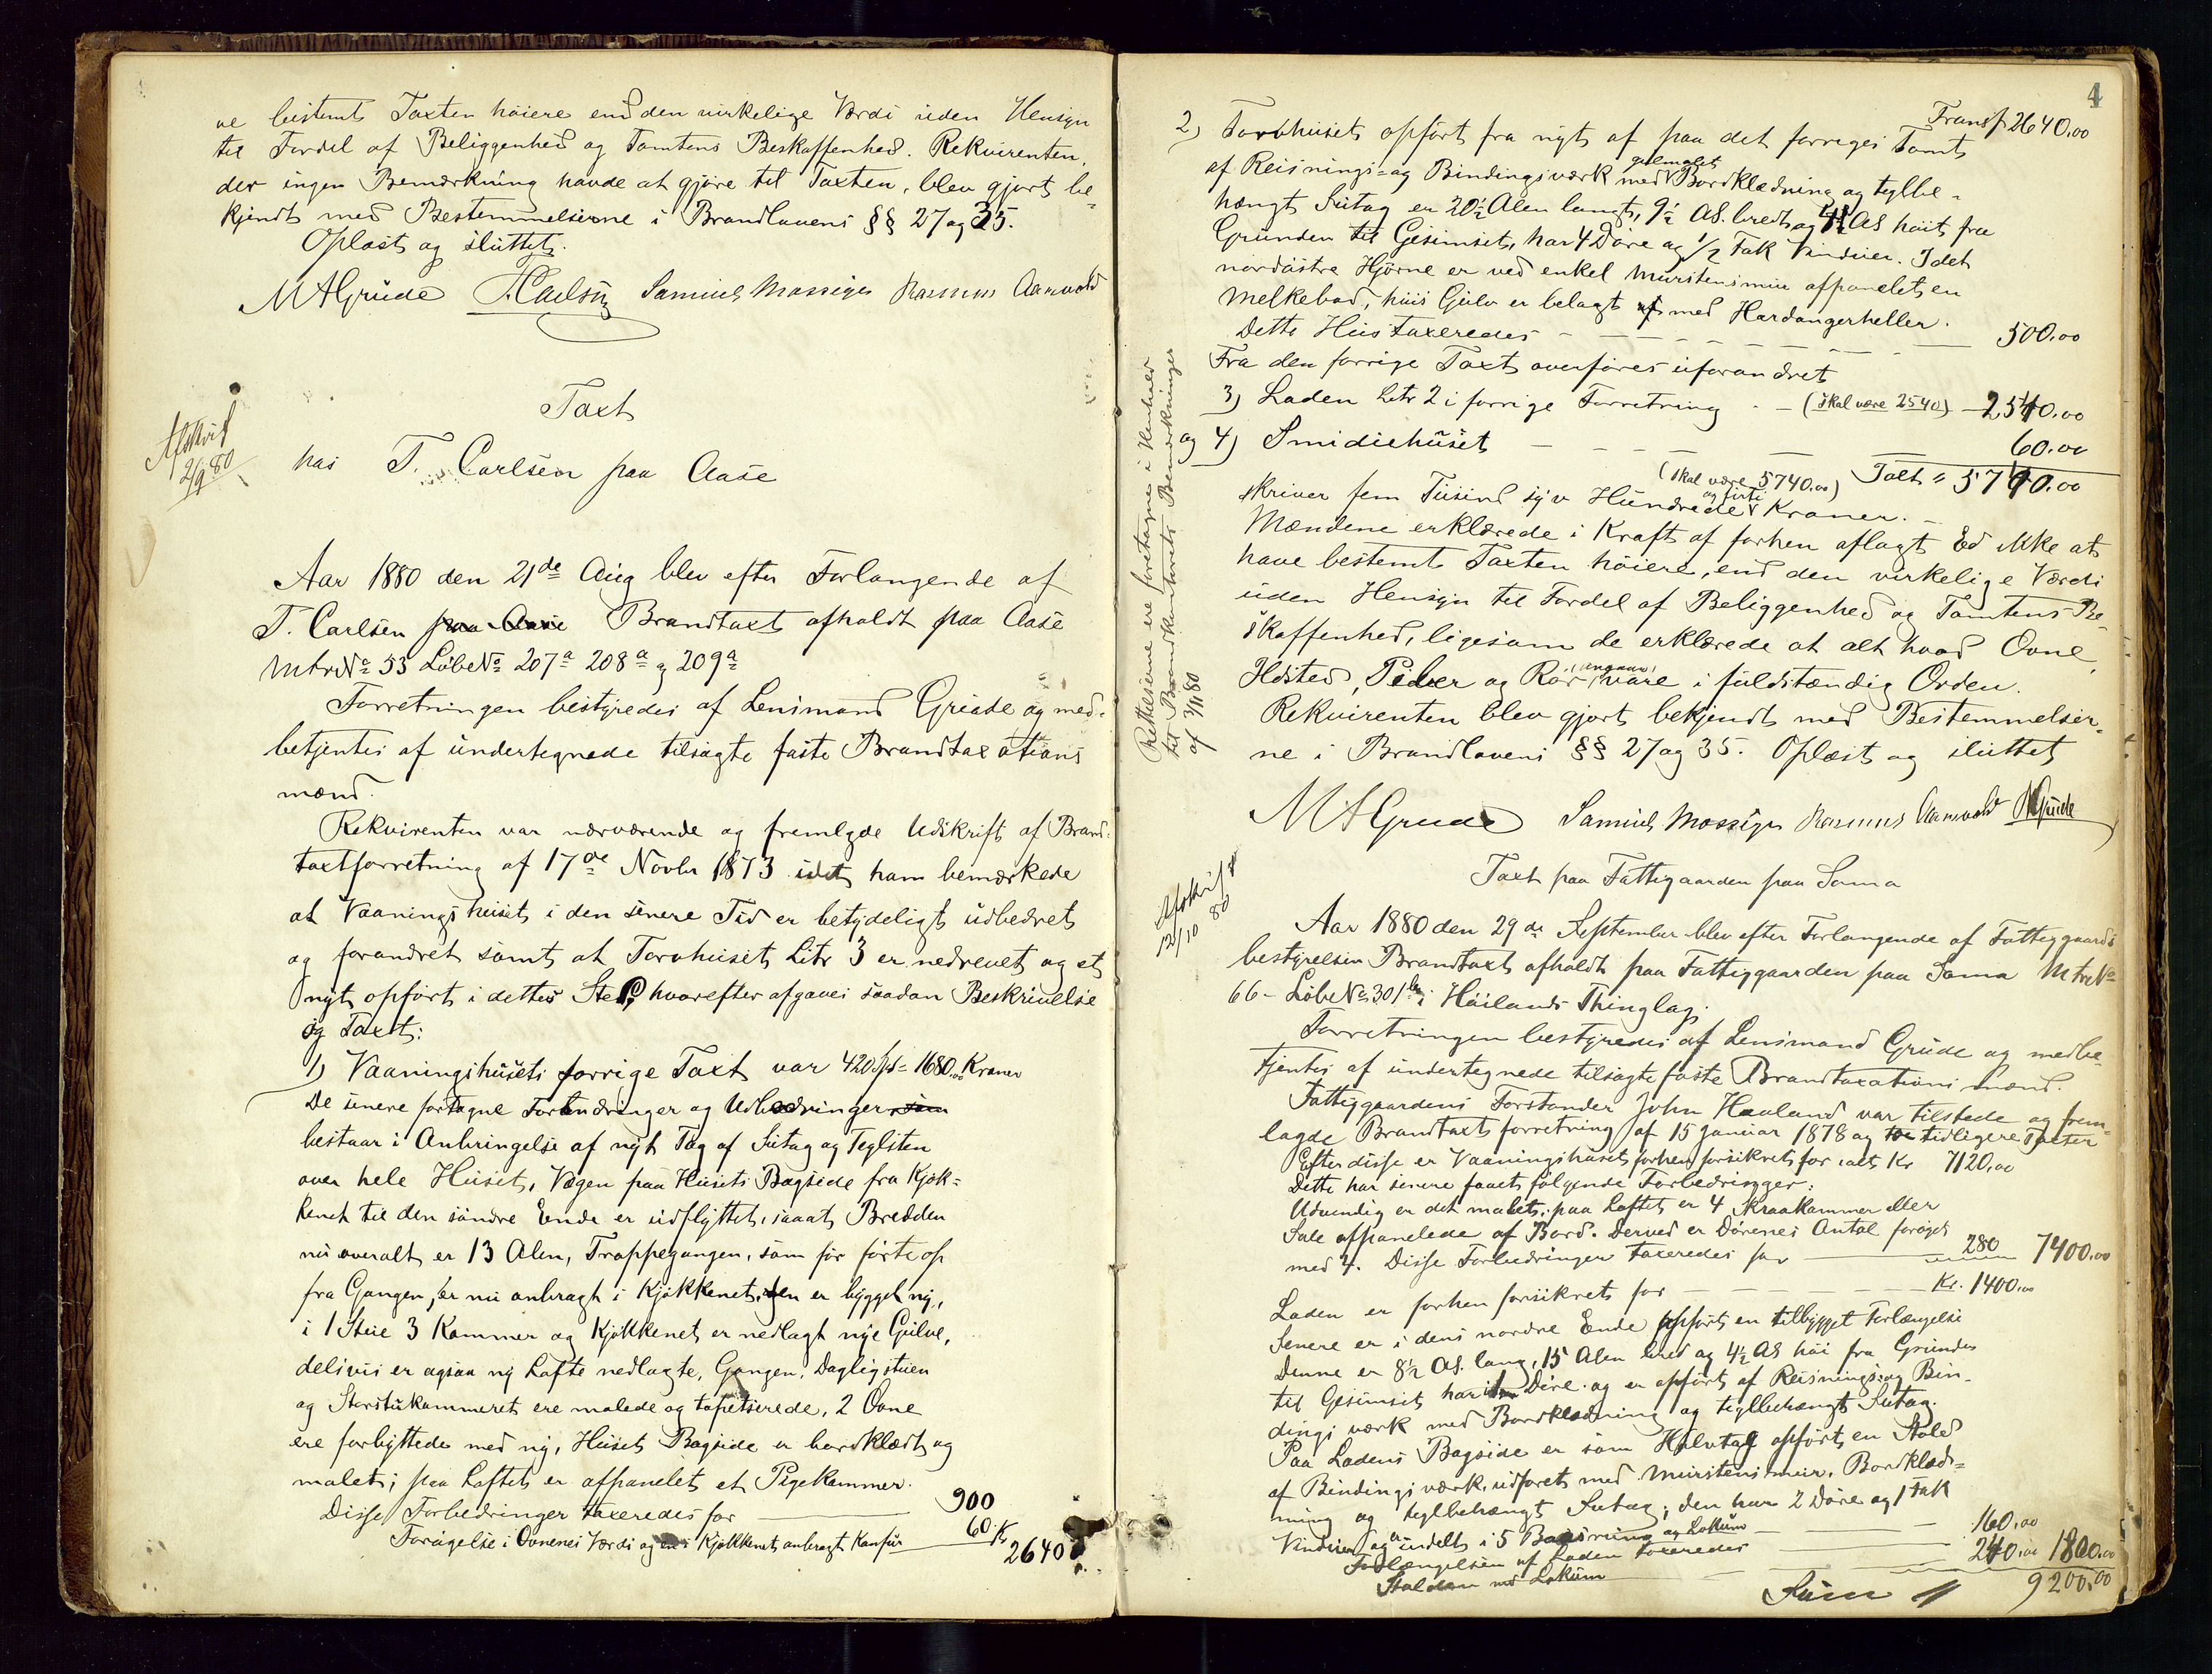 ve bestemt Taxten høiere end den virkelige Værdi uden Hensyn
til Fordel af Beliggenhed og Tomtens Beskaffenhed. Rekvirenten,
der ingen Bemærkning havde at gjøre til Taxten, blev gjort be-
kjendt med Bestemmelserne i Brandlovens §§ 27 og 35.
Oplæst og sluttet.
M A Grude T. Carlsen Samuel Mossige Rasmus Aanvold
Taxt
hos T. Carlsen paa Aase
Afskrift
2/9 80
Aar 1880 den 21de Aug blev efter Forlangende af
T. Carlsen paa Aase Brandtaxt afholdt paa Aase
Mtr No 53 Løbe No 207a 208a og 209a
Forretningen bestyredes af Lensmand Grude og med-
betjentes af undertegnede tilsagte faste Brandtaxations
mænd.
Rekvirenten var nærværende og fremlagde Udskrift af Brand-
taxtforretning af 17de Novbr 1873 idet han bemærkede
at Vaaningshuset i den senere Tid er betydeligt udbedret
og forandret samt at Torvhuset Litr 3 er nedrevet og et
nyt opført i dettes Sted, hvorefter afgaves saadan Beskrivelse
og Taxt:
1) Vaaningshusets forrige Taxt var 420 Spd = 1680,00 Kroner
De senere foretagne Forandringer og Udbedringer som
bestaar i Anbringelse af nyt Tag af Sutag og Teglsten
over hele Huset, Vægen paa Husets Bagside fra Kjøk-
kenet til den søndre Ende er udflyttet, saaat Bredden
nu overalt er 13 Alen, Trappegangen, som før førte op
fra Gangen, er nu anbragt i Kjøkkenet, den er bygget ny,
i 1 Stue 3 Kammer og Kjøkkenet er nedlagt nye Gulve,
delvis er ogsaa ny Lofte nedlagte, Gangen, Dagligstuen
og Storstukammeret ere malede og tapetserede, 2 Ovne
ere forbyttede med ny, Husets Bagside er bordklædt og
malet; paa Loftet er afpanelet et Pigekammer.
Disse Forbedringer taxeredes for 900
Forøgelse i Ovnenes Værdi og en i Kjøkkenet anbragt Komfur 60 Kr
2640
4
Transp 2640,00
2) Torvhuset opført fra nyt af paa det forriges Tomt
af Reisnings- og Bindingsværk med gulmalet Bordklædning og teglbe-
hængt Sutag er 20½ Alen langt, 9½ Al. bredt og 4½ Al høit fra
Grunden til Gesimset, har 4 Døre og 1/2 Fak Vinduer. I det
nordøstre Hjørne er ved enkel Murstensmur afpanelet en
Melkebod, hvis Gulv er belagt med Hardangerheller.
Dette Hus taxeredes 500,00
Fra den forrige Taxt overføres uforandret
3) Laden Litr 2 i forrige Forretning (skal være 2540) 2,540,00
og 4) Smidiehuset 60,00
(skal være 5740,00) Ialt " 5740,00
skriver fem Tusind syv Hundrede og firti Kroner.
Mændene erklærede i Kraft af forhen aflagt Ed ikke at
have bestemt Taxten høiere, end den virkelige Værdi
uden Hensyn til Fordel af Beliggenhed og Tomtens Be-
skaffenhed, ligesom de erklærede at alt hvad Ovne,
Ildsted, Piber og Rør angaar, vare i fuldstændig Orden.
Rekvirenten blev gjort bekjendt med Bestemmelser-
ne i Brandlovens §§ 27 og 35. Oplæst og sluttet
M A Grude Samuel Mossige Rasmus Aanvold
Rettelserne ere foretagne i Henhold
til Brandkontorets Bemærkninger
af 3/11 80
Taxt paa Fattiggaarden paa Soma
Afskrift
12/10 80
Aar 1880 den 29de September blev efter Forlangende af Fattiggaards
bestyrelsen Brandtaxt afholdt paa Fattiggaarden paa Soma Mtr No
66 - Løbe No 301 i Høilands Thinglag.
Forretningen bestyredes af Lensmand Grude og medbe-
tjentes af undertegnede tilsagte faste Brandtaxationsmænd.
Fattiggaardens Forstander John Haaland var tilstede og frem-
lagde Brandtaxtforretning af 15 Januar 1878 og tidligere Taxter
Efter disse er Vaaningshuset forhen forsikret for ialt Kr 7120,00
Dette har senere faaet følgende Forbedringer:
Udvendig er det malet; paa Loftet er 4 Kraakammer eller
Sale afpanelede af Bord. Derved er Dørenes Antal forøget
med 4. Disse Forbedringer taxeredes for 280 7400,00
Laden er forhen forsikret for Kr. 1400,00
Senere er i dens nordre Ende opført en tilbygget Forlængelse
Denne er 8½ Al. lang, 15 Alen bred og 4½ Al høi fra Grunden
til Gesimset har Døre og er opført af Reisnings- og Bin-
dings værk med Bordklædning og teglbehængt Sutag.
Paa Ladens Bagside er som Halvtag opført en Stald
af Bindingsværk, udforet med Murstensmur, Bordklæd-
ning og teglbehængt Sutag; den har 2 Døre og 1 Fak
Vinduer og er indelt i 5 og Lokum
Forlængelsen af Laden taxeredes 160,00
Stalden med Lokum 240,00 1800,00
Sum 9200,00